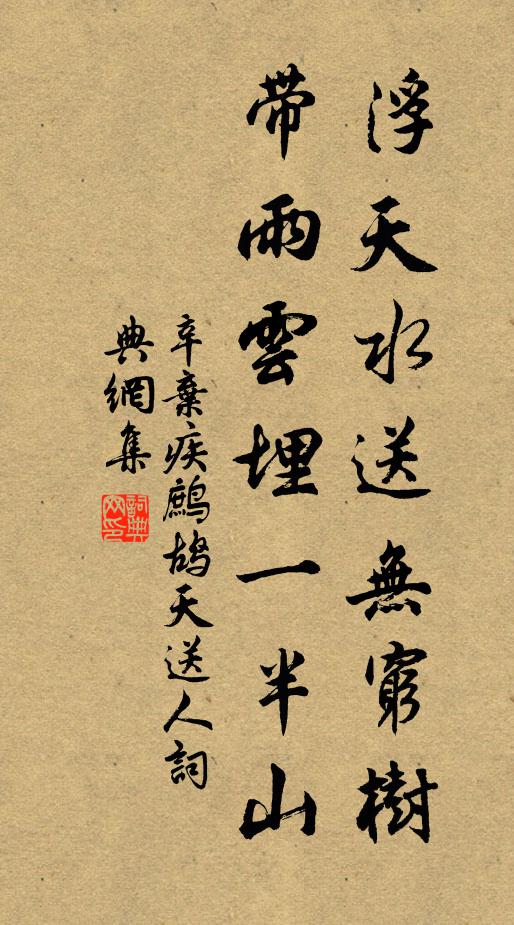 浮天水送無窮樹
帶雨雲埋一半山
辛棄疾鷓鴣天送人詞
典網集
詞典
网印